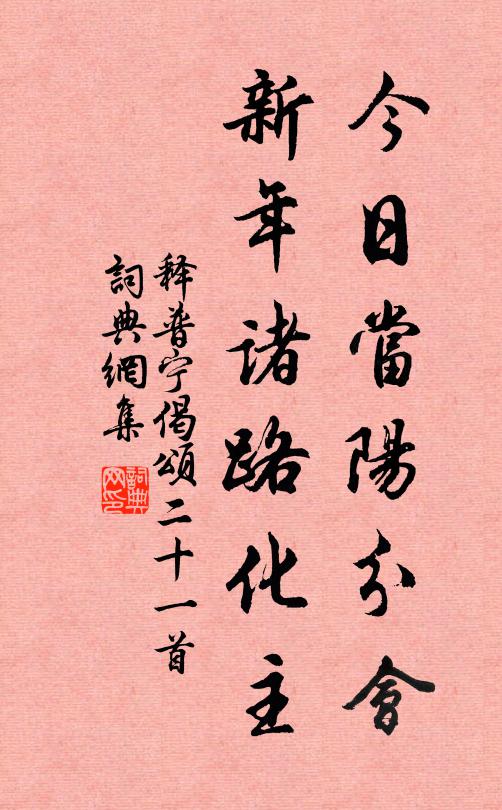 今日當陽分會
新年諸路化主
释普宁偈頌二十一首
詞典網集
詞典網印